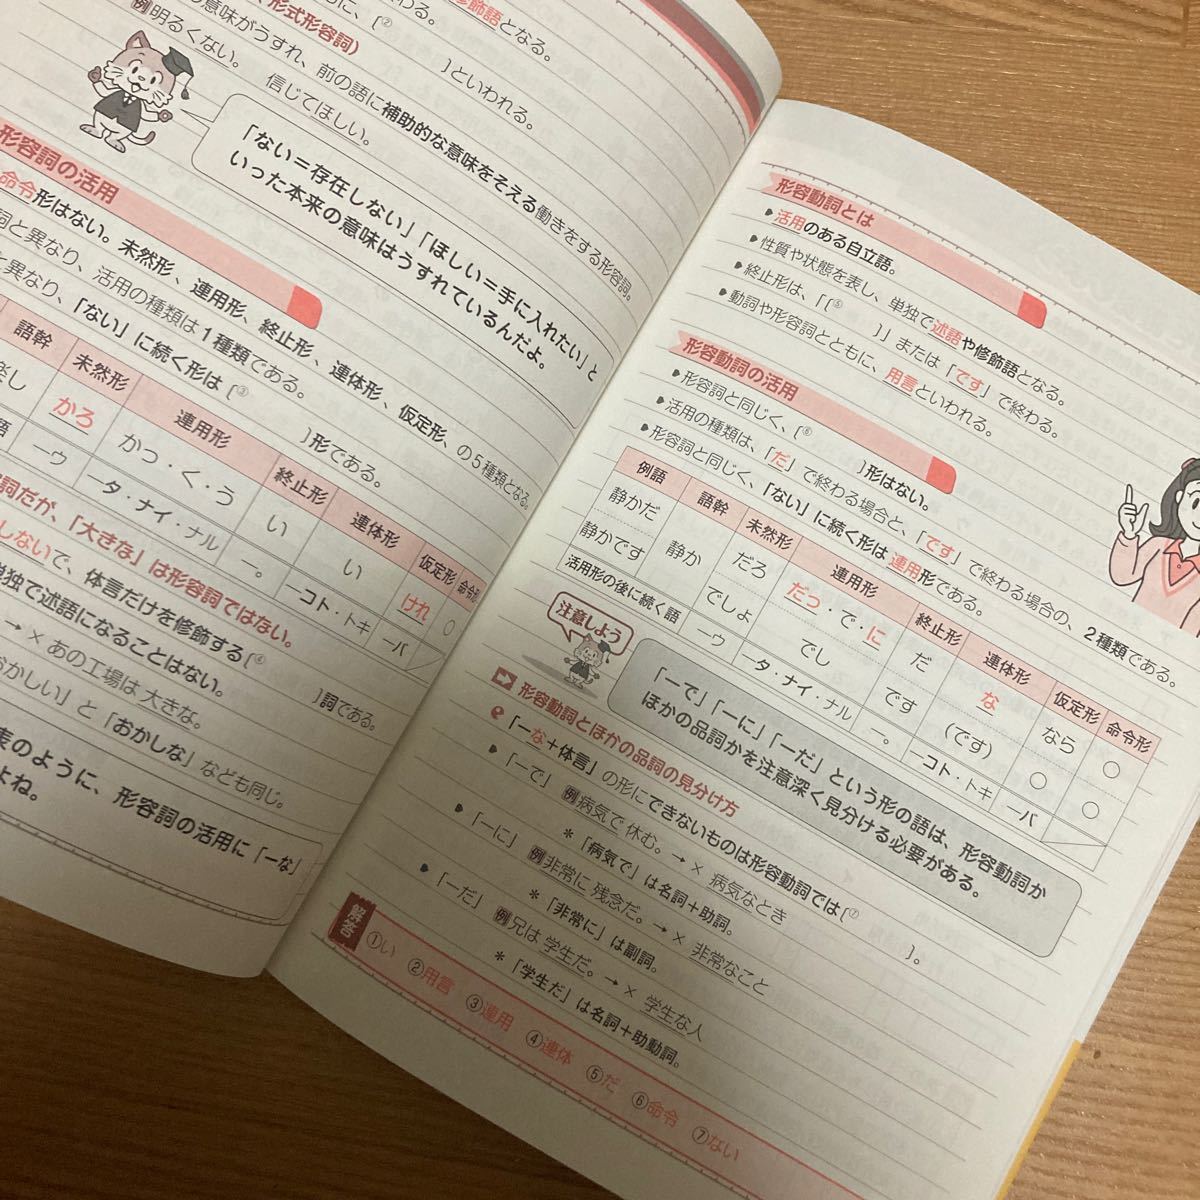 修飾語となる。
に、[② ]といわれる。
、形式形容詞)
意味がうすれ、前の語に補助的な意味をそえる働きをする形容詞。
例 明るくない。 信じてほしい。
「ない＝存在しない」「ほしい＝手に入れたい」と
いった本来の意味はうすれているんだよ。
形容詞の活用
命令形はない。未然形、連用形、終止形、連体形、仮定形、の5種類となる。
詞と異なり、活用の種類は1種類である。
異なり、「ない」に続く形は[③ ]形である。
語幹 未然形 連用形 終止形 連体形 仮定形 命令形
楽し かろ かっ・く・う い い けれ ○
語 ーウ ータ・ナイ・ナル ー。 ーコト・トキ ーバ
詞だが、「大きな」は形容詞ではない。
しないで、体言だけを修飾する[④ ]詞である。
単独で述語になることはない。
→ × あの工場は 大きな。
おかしい」と「おかしな」なども同じ。
表のように、形容詞の活用に「ーな」
よね。
形容動詞とは
活用のある自立語。
性質や状態を表し、単独で述語や修飾語となる。
終止形は、「[⑤ ]」または「です」で終わる。
動詞や形容詞とともに、用言といわれる。
形容動詞の活用
形容詞と同じく、[⑥ ]形はない。
活用の種類は、「だ」で終わる場合と、「です」で終わる場合の、2種類である。
形容詞と同じく、「ない」に続く形は連用形である。
例語 語幹 未然形 連用形 終止形 連体形 仮定形 命令形
静かだ 静か だろ だっ・で・に だ な なら ○
静かです でしょ でし です (です) ○ ○
活用形の後に続く語 ーウ ータ・ナイ・ナル ー。 ーコト・トキ ーバ
注意しよう
「ーで」「ーに」「ーだ」という形の語は、形容動詞か
ほかの品詞かを注意深く見分ける必要がある。
形容動詞とほかの品詞の見分け方
「ーな＋体言」の形にできないものは形容動詞では[⑦ ]。
「ーで」 例 病気で 休む。→ × 病気なとき
＊「病気で」は名詞＋助詞。
「ーに」 例 非常に 残念だ。→ × 非常なこと
＊「非常に」は副詞。
「ーだ」 例 兄は 学生だ。→ × 学生な人
＊「学生だ」は名詞＋助動詞。
解答 ①い ②用言 ③連用 ④連体 ⑤だ ⑥命令 ⑦ない